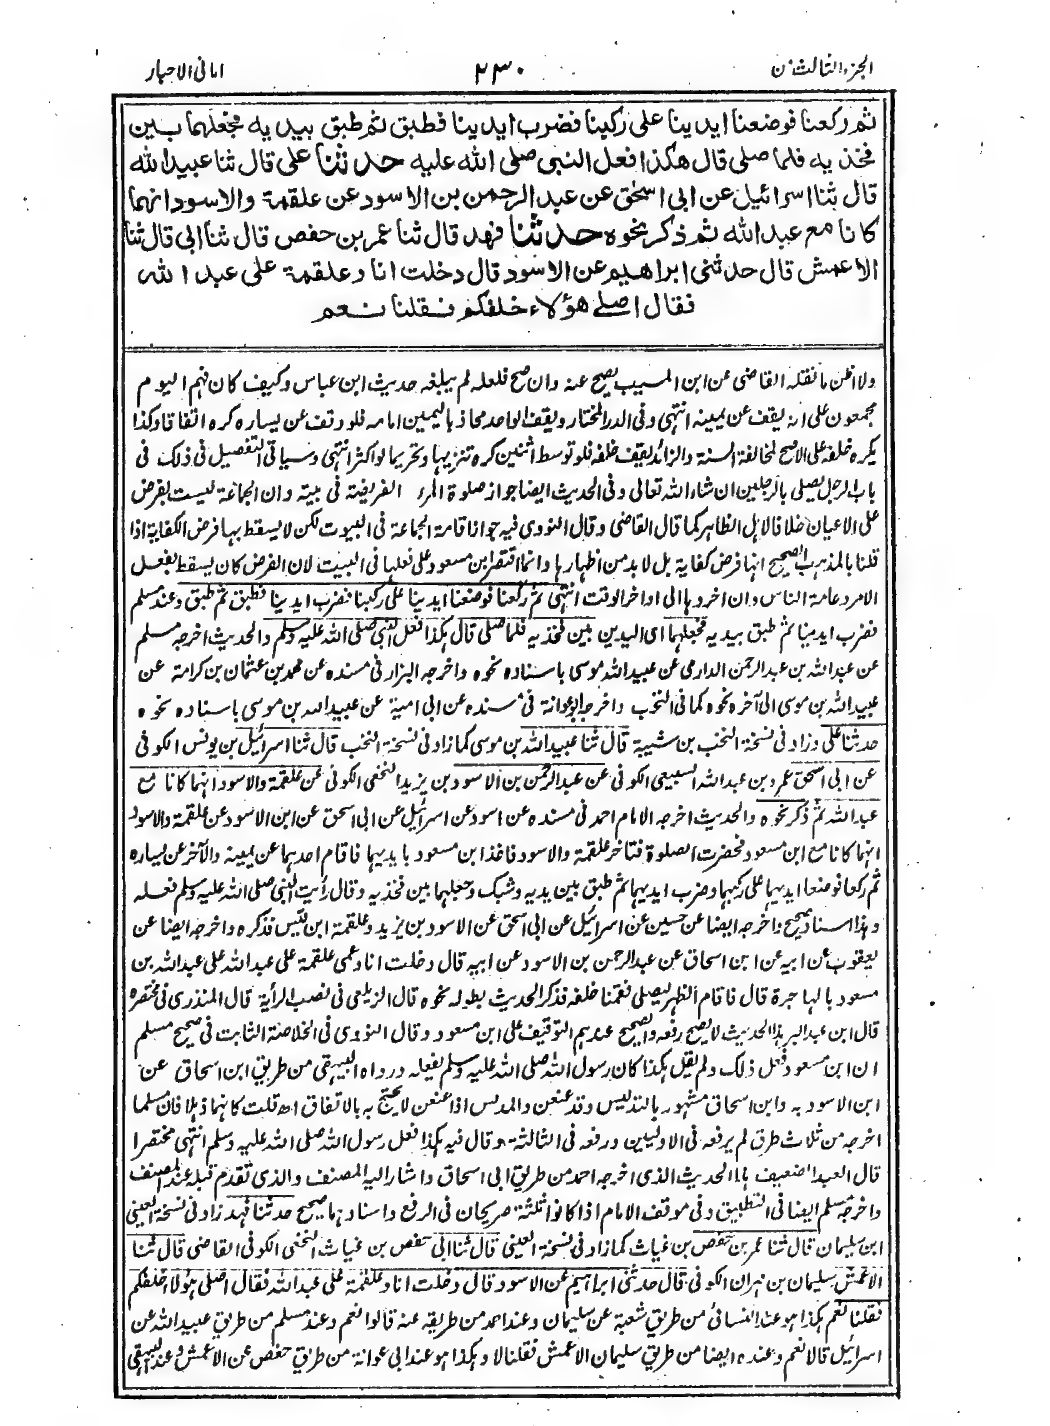 الجزء الثالث من
٢٣٠
امانى الاحبار
ثم ركعنا فوضعنا ايدينا على ركبنا فضرب ايدينا فطبق ثم طبق بيديه فجعلهما بين
فخذيه فلما صلى قال هكذا فعل النبى صلى الله عليه حدثنا على قال ثنا عبيد الله
قال ثنا اسرائيل عن ابى اسحق عن عبد الرحمن بن الاسود عن علقمة والاسود انهما
كانا مع عبد الله ثم ذكر نحوه حدثنا فهد قال ثنا عمر بن حفص قال ثنا ابى قال ثنا
الاعمش قال حدثنى ابراهيم عن الاسود قال دخلت انا وعلقمة على عبد الله
فقال اصلى هؤلاء خلفكم فقلنا نعم
ولا اظن ما نقله القاضى عن ابن المسيب يصح عنه وان صح فلعله لم يبلغه حديث ابن عباس وكيف كان فهم اليوم
مجمعون على انه يقف عن يمينه انتهى وفى الدر المختار ويقف الواحد محاذيا ليمين امامه فلو وقف عن يساره كره اتفاقا وكذا
يكره خلفه على الاصح لمخالفة السنة والزائد يقف خلفه فلو توسط اثنين كره تنزيها وتحريما لو اكثر انتهى وسياتى التفصيل فى ذلك فى
باب الرجل يصلى بالرجلين ان شاء الله تعالى وفى الحديث ايضا جواز صلوة المرء الفريضة فى بيته وان الجماعة ليست بفرض
على الاعيان خلافا لاهل الظاهر كما قال القاضى وقال النووى فيه جواز اقامة الجماعة فى البيوت لكن لا يسقط بها فرض الكفاية اذا
قلنا بالمذهب الصحيح انها فرض كفاية بل لا بد من اظهارها وانما اقتصر ابن مسعود على فعلها فى البيت لان الفرض كان يسقط بفعل
الامر وعامة الناس وان اخروها الى اواخر الوقت انتهى ثم ركعنا فوضعنا ايدينا على ركبنا فضرب ايدينا فطبق ثم طبق وعند مسلم
فضرب ايدينا ثم طبق بيديه فجعلهما اى اليدين بين فخذيه فلما صلى قال هكذا فعل النبى صلى الله عليه وسلم والحديث اخرجه مسلم
عن عبد الله بن عبد الرحمن الدارمى عن عبيد الله موسى باسناده نحوه واخرجه البزار فى مسنده عن محمد بن عثمان بن كرامة عن
عبيد الله بن موسى الى آخره نحوه كما فى النخب واخرجه ابو عوانة فى مسنده عن ابى امية عن عبيد الله بن موسى باسناده نحوه
حدثنا على وزاد فى نسخة النخب بن شيبة قال ثنا عبيد الله بن موسى كما زاد فى نسخة النخب قال ثنا اسرائيل بن يونس الكوفى
عن ابى اسحق عمرو بن عبد الله السبيعى الكوفى عن عبد الرحمن بن الاسود بن يزيد النخعى الكوفى عن علقمة والاسود انهما كانا مع
عبد الله ثم ذكر نحوه والحديث اخرجه الامام احمد فى مسنده عن اسود عن اسرائيل عن ابى اسحق عن ابن الاسود عن علقمة والاسود
انهما كانا مع ابن مسعود فحضرت الصلوة فتاخر علقمة والاسود فاخذ ابن مسعود بايديهما فاقام احدهما عن يمينه والآخر عن يساره
ثم ركعا فوضعا ايديهما على ركبهما وضرب ايديهما ثم طبق بين يديه وشبك وجعلهما بين فخذيه وقال رأيت النبى صلى الله عليه وسلم فعله
وهذا اسناد صحيح واخرجه ايضا عن حسين عن اسرائيل عن ابى اسحق عن الاسود بن يزيد وعلقمة ابن قيس فذكره واخرجه ايضا عن
يعقوب عن ابيه عن ابن اسحاق عن عبد الرحمن بن الاسود عن ابيه قال دخلت انا وعمى علقمة على عبد الله على عبد الله بن
مسعود بالهاجرة قال فاقام الظهر ليصلى فقمنا خلفه فذكر الحديث بطوله نحوه قال الزيلعى فى نصب الرأية قال المنذرى فى مختصره
قال ابن عبد البر هذا الحديث لا يصح رفعه والصحيح عندهم التوقيف على ابن مسعود وقال النووى فى الخلاصة الثابت فى صحيح مسلم
ان ابن مسعود فعل ذلك ولم يقل هكذا كان رسول الله صلى الله عليه وسلم يفعله ورواه البيهقى من طريق ابن اسحاق عن
ابن الاسود به وابن اسحاق مشهور بالتدليس وقد عنعن والمدلس اذا عنعن لا يحتج به بالاتفاق اه قلت كانهما ذهلا فان مسلما
اخرجه من ثلاث طرق لم يرفعه فى الاوليين ورفعه فى الثالثة وقال فيه هكذا فعل رسول الله صلى الله عليه وسلم انتهى مختصرا
قال العبد الضعيف هذا الحديث الذى اخرجه احمد من طريق ابى اسحاق واشار اليه المصنف والذى تقدم قبله عند المصنف
واخرجه مسلم ايضا فى التطبيق وفى موقف الامام اذا كانوا ثلثة صريحان فى الرفع واسنادهما صحيح حدثنا فهد زاد فى نسخة العينى
ابن سليمان قال ثنا عمر بن حفص بن غياث كما زاد فى نسخة العينى قال ثنا ابى حفص بن غياث النخعى الكوفى القاضى قال ثنا
الاعمش سليمان بن مهران الكوفى قال حدثنى ابراهيم عن الاسود قال دخلت انا وعلقمة على عبد الله فقال اصلى هؤلاء خلفكم
فقلنا نعم هكذا هو عند النسائى من طريق شعبة عن سليمان وعند احمد من طريقه عنه قالوا نعم وعند مسلم من طريق عبيد الله عن
اسرائيل قالا نعم وعنده ايضا من طريق سليمان الاعمش فقلنا لا وهكذا هو عند ابى عوانة من طريق حفص عن الاعمش وعند البيهقى